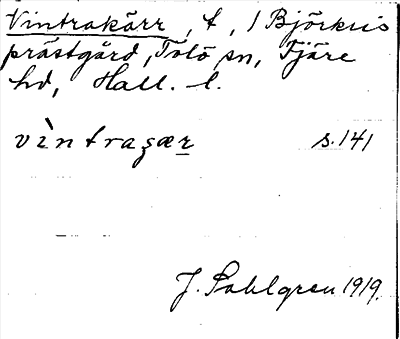 Vintrakärr, t, 1 Björkris
prästgård, Tölö sn, Fjäre
hd, Hall. l.
vìntraşær s. 141
J. Sahlgren 1919.